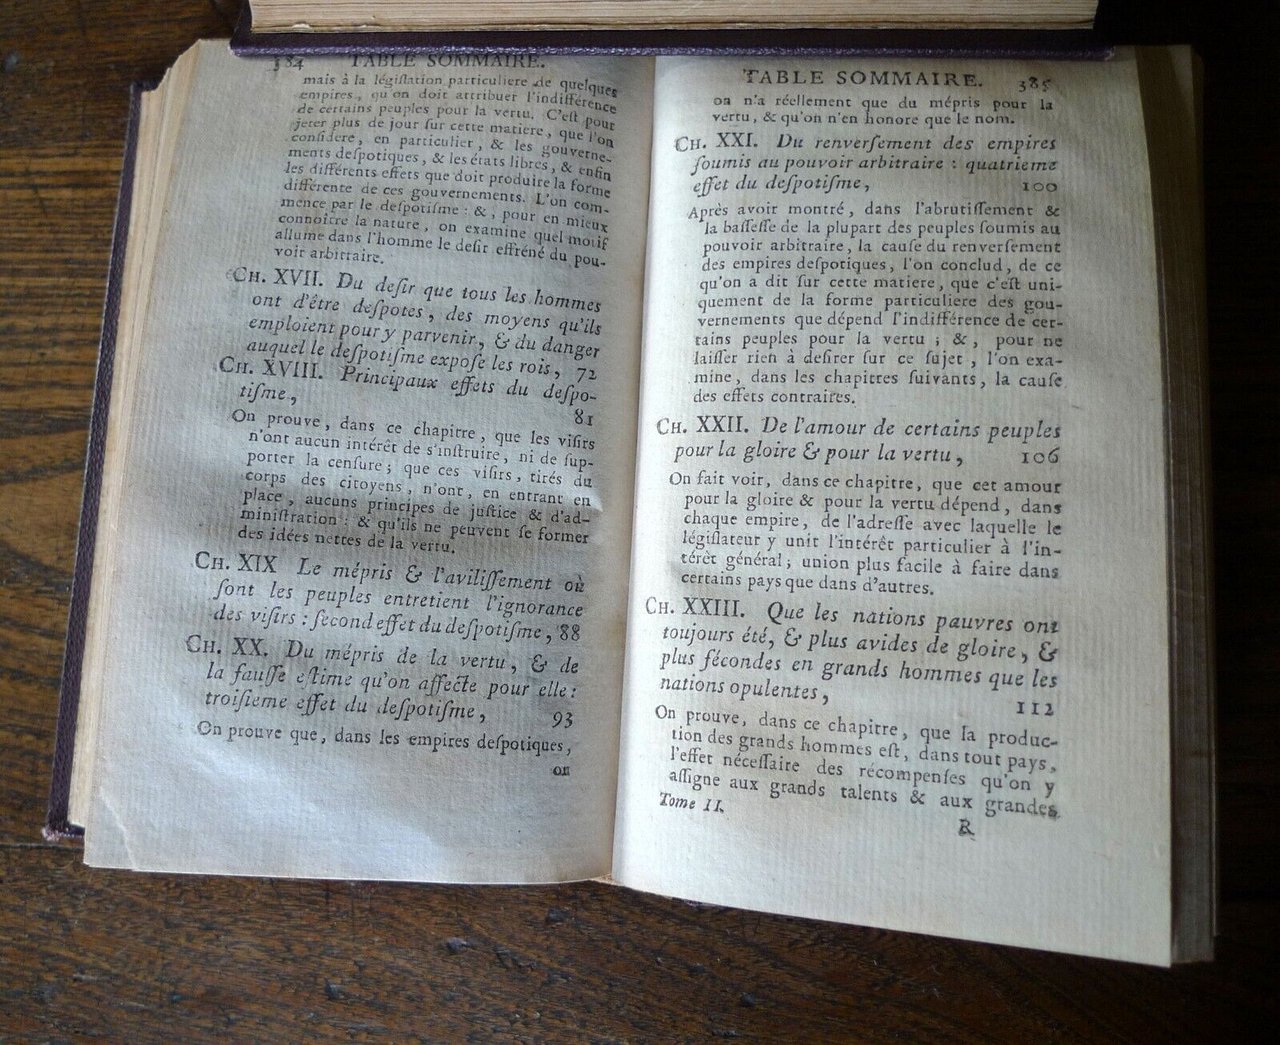 384 TABLE SOMMAIRE.
mais à la légiſlation particuliere de quelques
empires, qu'on doit attribuer l'indifférence
de certains peuples pour la vertu. C'eſt pour
jetter plus de jour ſur cette matiere, que l'on
conſidere, en particulier, & les gouverne-
ments deſpotiques, & les états libres, & enfin
les différents effets que doit produire la forme
différente de ces gouvernements. L'on com-
mence par le deſpotiſme : &, pour en mieux
connoître la nature, on examine quel motif
allume dans l'homme le deſir effréné du pou-
voir arbitraire.
CH. XVII. Du deſir que tous les hommes
ont d'être deſpotes, des moyens qu'ils
emploient pour y parvenir, & du danger
auquel le deſpotiſme expoſe les rois, 72
CH. XVIII. Principaux effets du deſpo-
tiſme, 81
On prouve, dans ce chapitre, que les viſirs
n'ont aucun intérêt de s'inſtruire, ni de ſup-
porter la cenſure; que ces viſirs, tirés du
corps des citoyens, n'ont, en entrant en
place, aucuns principes de juſtice & d'ad-
miniſtration; & qu'ils ne peuvent ſe former
des idées nettes de la vertu.
CH. XIX Le mépris & l'aviliſſement où
ſont les peuples entretient l'ignorance
des viſirs : ſecond effet du deſpotiſme, 88
CH. XX. Du mépris de la vertu, & de
la fauſſe eſtime qu'on affecte pour elle :
troiſieme effet du deſpotiſme, 93
On prouve que, dans les empires deſpotiques,
on
TABLE SOMMAIRE. 385
on n'a réellement que du mépris pour la
vertu, & qu'on n'en honore que le nom.
CH. XXI. Du renverſement des empires
ſoumis au pouvoir arbitraire : quatrieme
effet du deſpotiſme, 100
Après avoir montré, dans l'abrutiſſement &
la baſſeſſe de la plupart des peuples ſoumis au
pouvoir arbitraire, la cauſe du renverſement
des empires deſpotiques, l'on conclud, de ce
qu'on a dit ſur cette matiere, que c'eſt uni-
quement de la forme particuliere des gou-
vernements que dépend l'indifférence de cer-
tains peuples pour la vertu ; &, pour ne
laiſſer rien à deſirer ſur ce ſujet, l'on exa-
mine, dans les chapitres ſuivants, la cauſe
des effets contraires.
CH. XXII. De l'amour de certains peuples
pour la gloire & pour la vertu, 106
On fait voir, dans ce chapitre, que cet amour
pour la gloire & pour la vertu dépend, dans
chaque empire, de l'adreſſe avec laquelle le
légiſlateur y unit l'intérêt particulier à l'in-
térèt général; union plus facile à faire dans
certains pays que dans d'autres.
CH. XXIII. Que les nations pauvres ont
toujours été, & plus avides de gloire, &
plus fécondes en grands hommes que les
nations opulentes, 112
On prouve, dans ce chapitre, que la produc-
tion des grands hommes eſt, dans tout pays,
l'effet néceſſaire des récompenſes qu'on y
aſſigne aux grands talents & aux grandes
Tome II. R